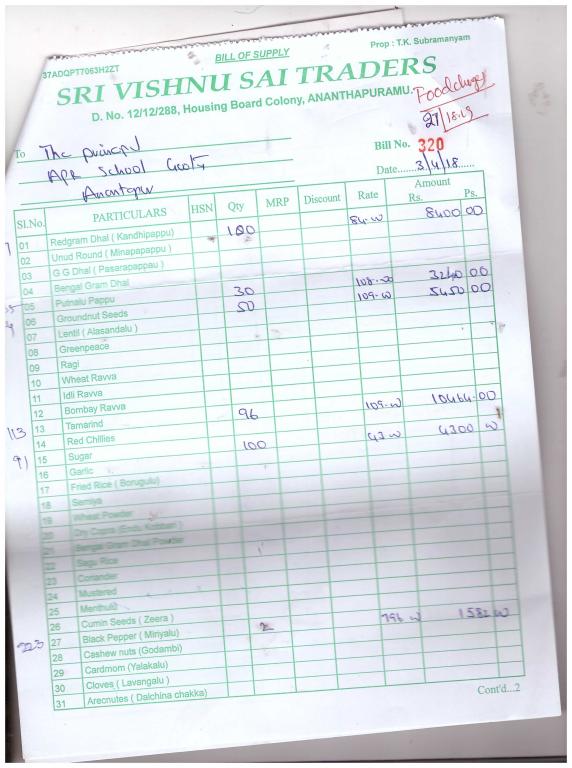 37ADQPT7063H2ZT
BILL OF SUPPLY
Prop : T.K. Subramanyam
SRI VISHNU SAI TRADERS
D. No. 12/12/288, Housing Board Colony, ANANTHAPURAMU.
27/18.19
To The principal
APR School
Anantapur
Bill No. 320
Date.......3/4/18......
Sl.No. PARTICULARS HSN Qty MRP Discount Rate Amount Rs. Ps.
01 Redgram Dhal ( Kandhipappu) 100 84-00 8400 00
02 Unud Round ( Minapapappu )
03 G G Dhal ( Pasarapappau )
04 Bengal Gram Dhal
05 Putnalu Pappu 30 108-00 3240 00
06 Groundnut Seeds 50 109-00 5450 00
07 Lentil ( Alasandalu )
08 Greenpeace
09 Ragi
10 Wheat Ravva
11 Idli Ravva
12 Bombay Ravva
13 Tamarind 96 109-00 10464-00
14 Red Chillies
15 Sugar 100 43-00 4300 00
16 Garlic
17 Fried Rice ( Borugulu)
18 Semiya
19 Wheat Powder
20 Dry Cupra (Endu Kobbari )
21 Bengal Gram Dhal Powder
22 Sagu Rice
23 Coriander
24 Mustered
25 Menthulu
26 Cumin Seeds ( Zeera )
27 Black Pepper ( Minyalu) 2 1582 00
28 Cashew nuts (Godambi)
29 Cardmom (Yalakalu)
30 Cloves ( Lavangalu )
31 Arecnutes ( Dalchina chakka)
113
91
223
Cont'd...2